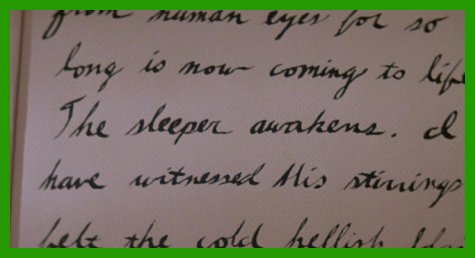 from human eyes for so
long is now coming to life
The sleeper awakens. I
have witnessed His stirrings
felt the cold hellish